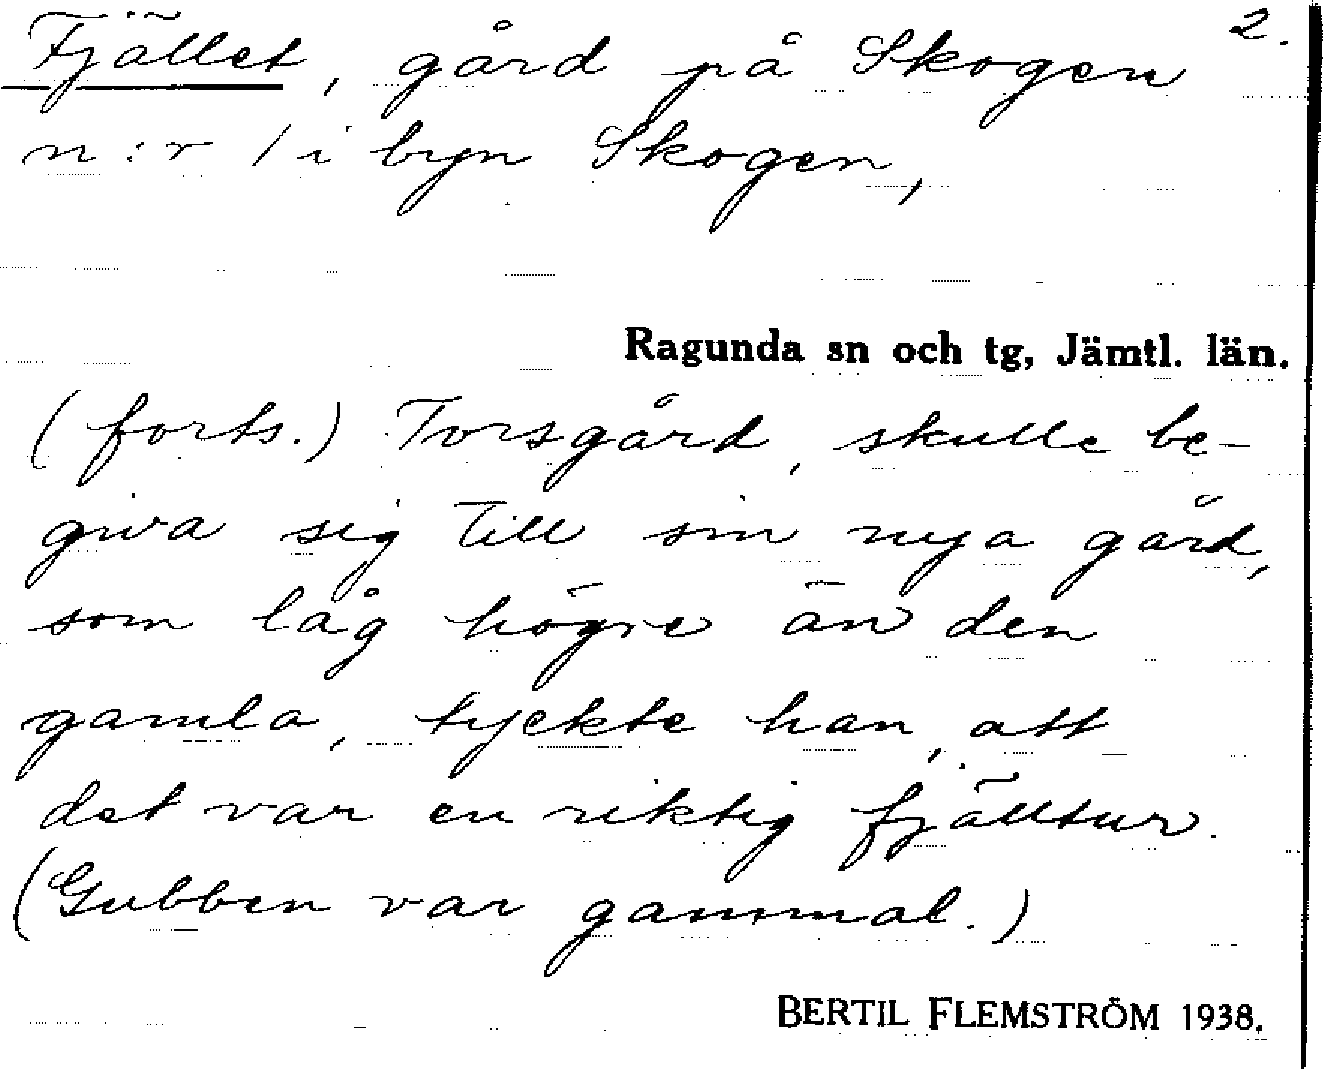 2.
Fjället, gård på Skogen
n:r 1 i byn Skogen,
Ragunda sn och tg, Jämtl. län.
(forts.) Torsgård, skulle be-
giva sig till sin nya gård,
som låg högre än den
gamla, tyckte han, att
det var en riktig fjälltur.
(Gubben var gammal.)
BERTIL FLEMSTRÖM 1938.